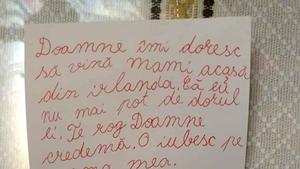 Doamne îmi doresc
să vină mami acasă
din irlanda. Că eu
nu mai pot de dorul
li. Te rog Doamne
credemă. O iubesc pe
mea.